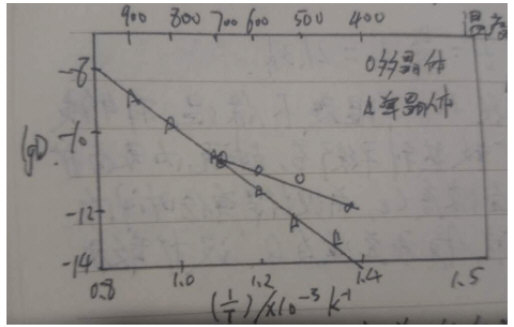 900 800 700 600 500 400 温度
O多晶体
△单晶体
-8
lgD
-10
-12
-14
0.8 1.0 1.2 1.4 1.5
(1/T)/×10⁻³ K⁻¹